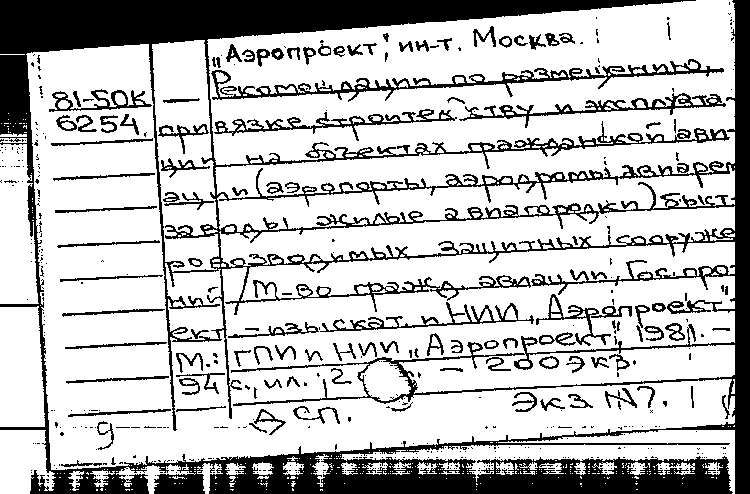 „Аэропроект", ин-т. Москва.
81-50К — Рекомендации по размещению,
6254. привязке, строительству и эксплуата-
ции на объектах гражданской ави-
ации (аэропорты, аэродромы, авиарем
заводы, жилые авиагородки) быст-
ровозводимых защитных сооруже
ний / М-во гражд. авиации, Гос. про-
ект.-изыскат. и НИИ „Аэропроект".-
М.: ГПИ и НИИ „Аэропроект", 1981. -
94 с., ил.; 2 - 200 экз.
ДСП. Экз. №7.
9